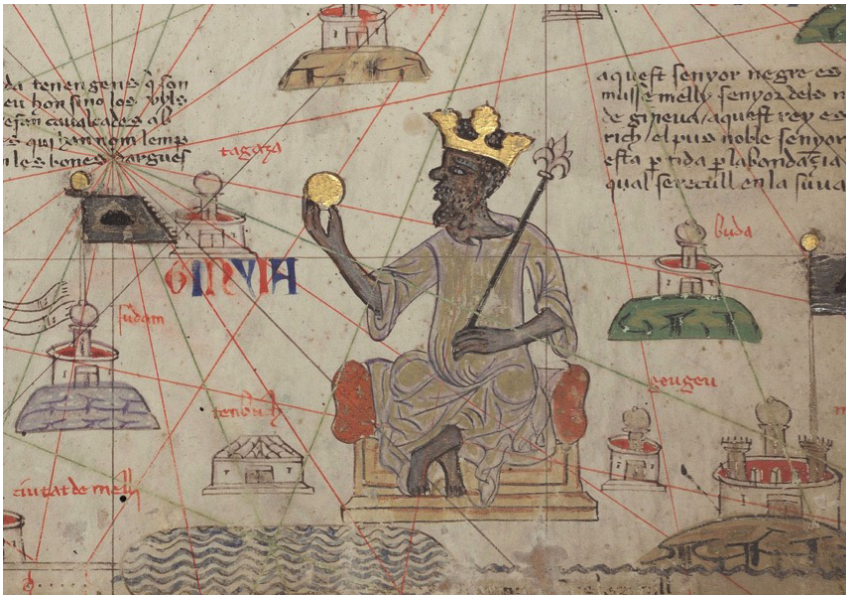 da tenen gens q̃ son
eu hon sino los vyls
cavalcades ab
s qui han nom lemps
n les bones dargues
aquest senyor negre es
musse melly senyor dels n
de gineua aquest rey es
rich el pus noble senyor
esta ꝑtida ꝑ labondaçia
qual se recull en la sua
tagaza
buda
GINYIA
sudam
geugeu
tenbuch
ciutat de melly